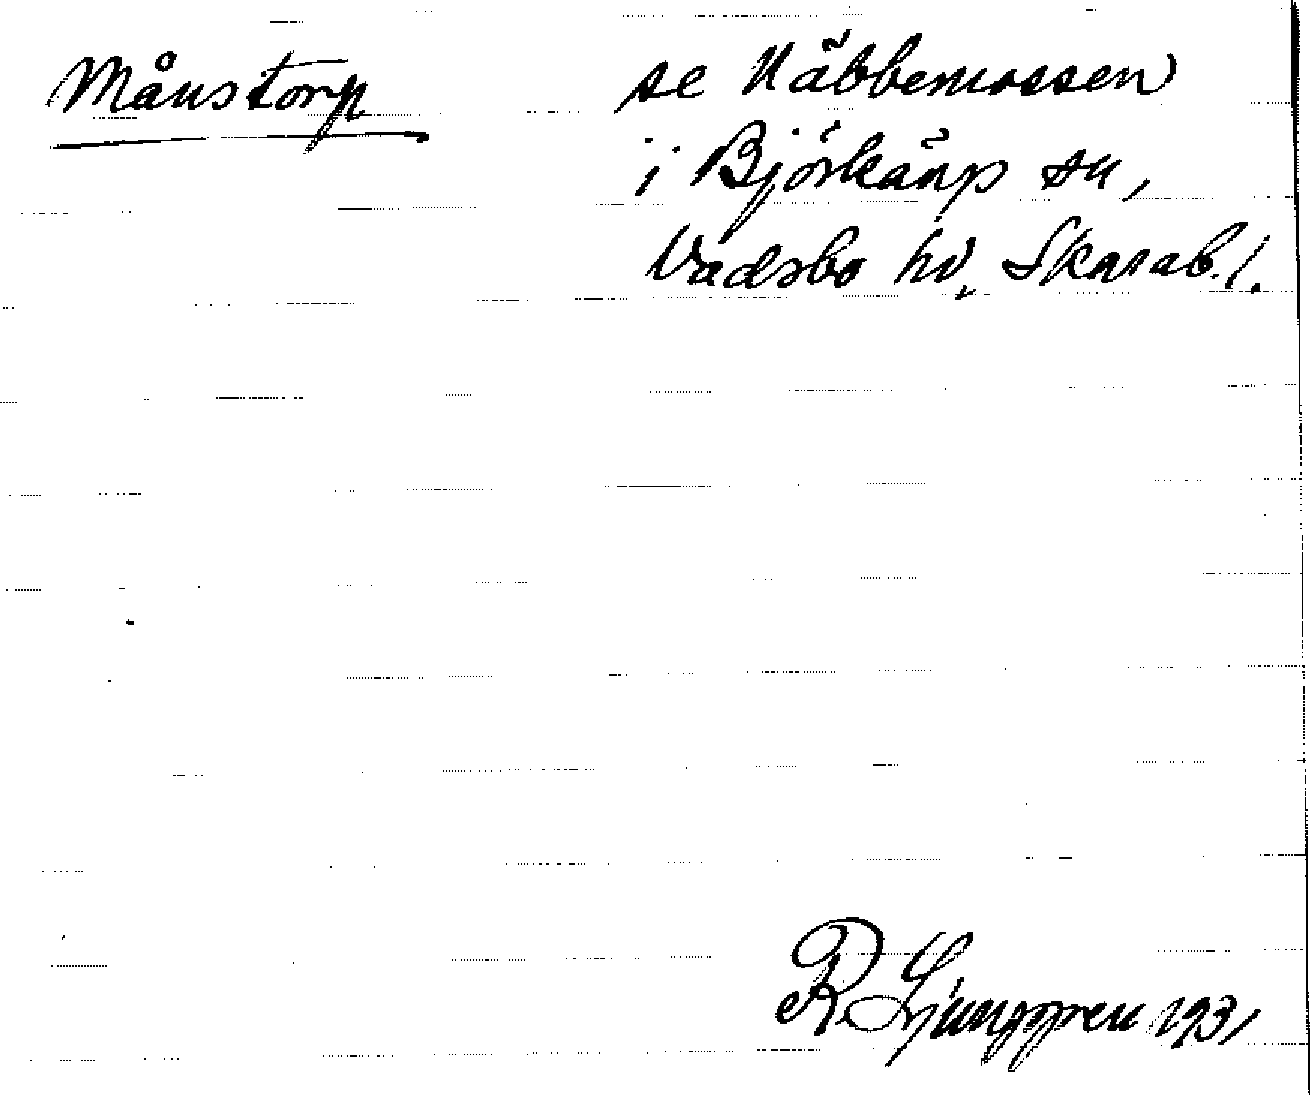 Månstorp
se Näbbemossen
i Björkäng sn,
Vadsbo hd, Skarab. l.
R Ljunggren 1931